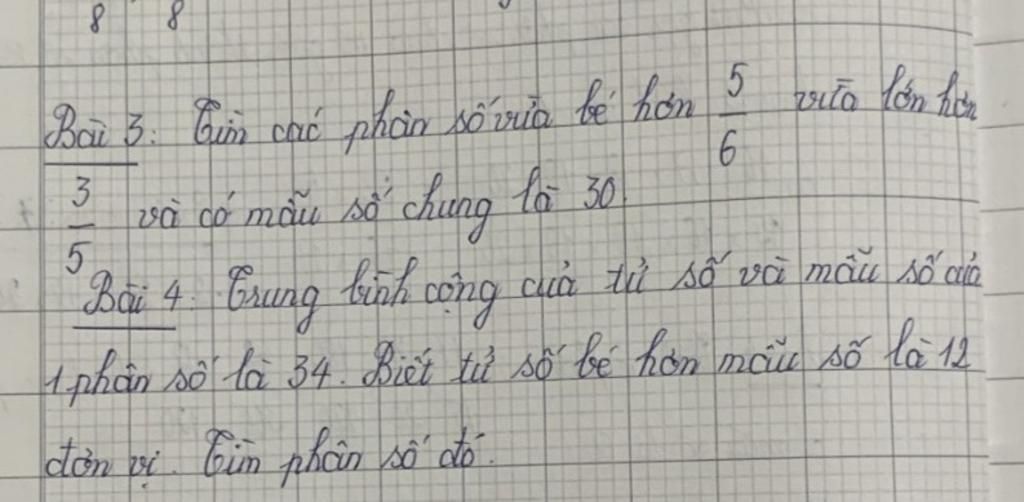 8 8
Bài 3: Tìm các phân số vừa bé hơn 5/6 vừa lớn hơn
3/5 và có mẫu số chung là 30.
Bài 4. Trung bình cộng của tử số và mẫu số của
1 phân số là 34. Biết tử số bé hơn mẫu số là 12
đơn vị. Tìm phân số đó.